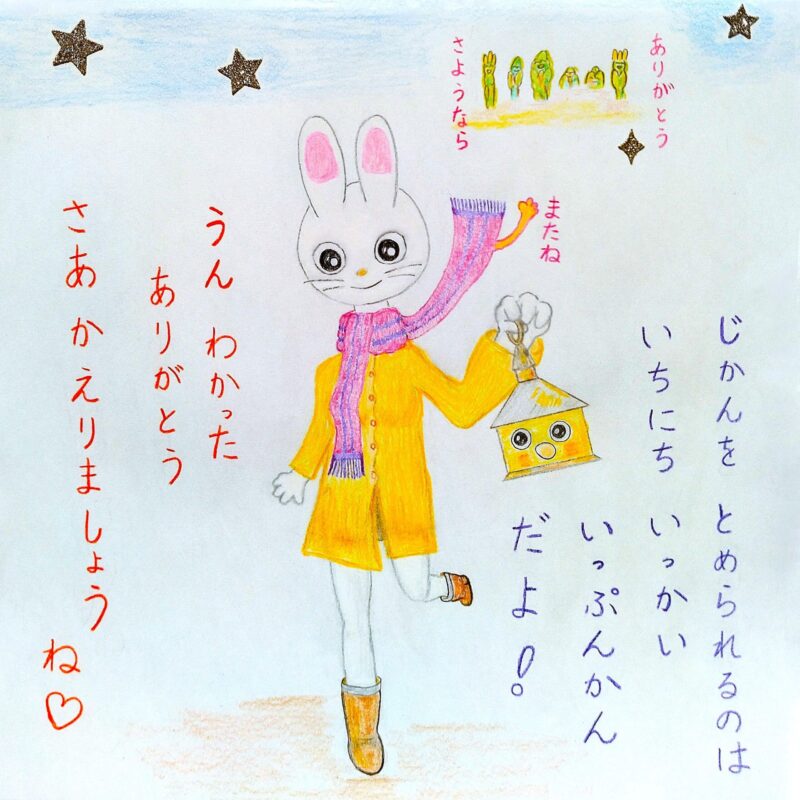 ありがとう
さようなら
またね
じかんを とめられるのは
いちにち いっかい
いっぷんかん
だよ!
うん わかった
ありがとう
さあ かえりましょう
ね♡